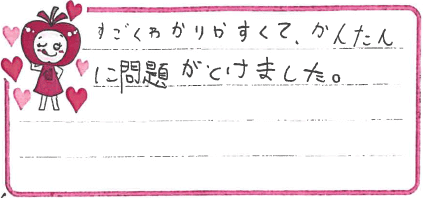 すごくわかりやすくて、かんたん
に問題がとけました。